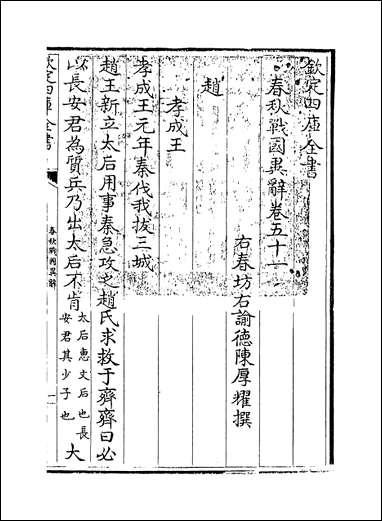 欽定四庫全書
春秋戰國異辭卷五十一
右春坊右諭德陳厚耀撰
趙
孝成王
孝成王元年秦伐我拔三城
趙王新立太后用事秦急攻之趙氏求救于齊齊曰必
以長安君為質兵乃出太后不肯
太后惠文后也長
安君其少子也
大
欽定四庫全書
春秋戰國異辭
一